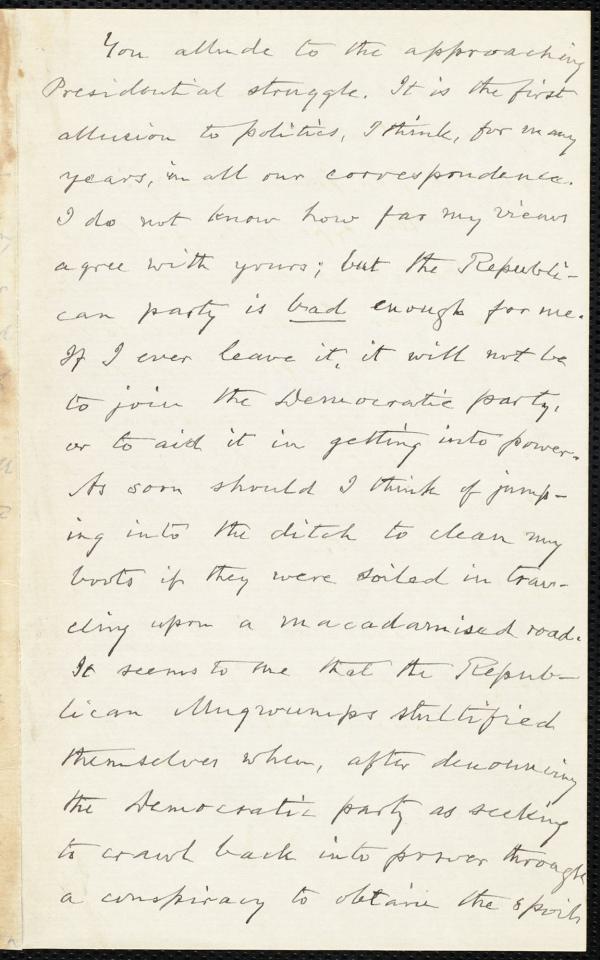 You allude to the approaching
Presidential struggle. It is the first
allusion to politics, I think, for many
years, in all our correspondence.
I do not know how far my views
agree with yours; but the Republi-
can party is bad enough for me.
If I ever leave it, it will not be
to join the Democratic party,
or to aid it in getting into power.
As soon should I think of jump-
ing into the ditch to clean my
boots if they were soiled in trav-
eling upon a macadamised road.
It seems to me that the Repub-
lican Mugwumps stultified
themselves when, after denouncing
the Democratic party as seeking
to crawl back into power through
a conspiracy to obtain the spoils